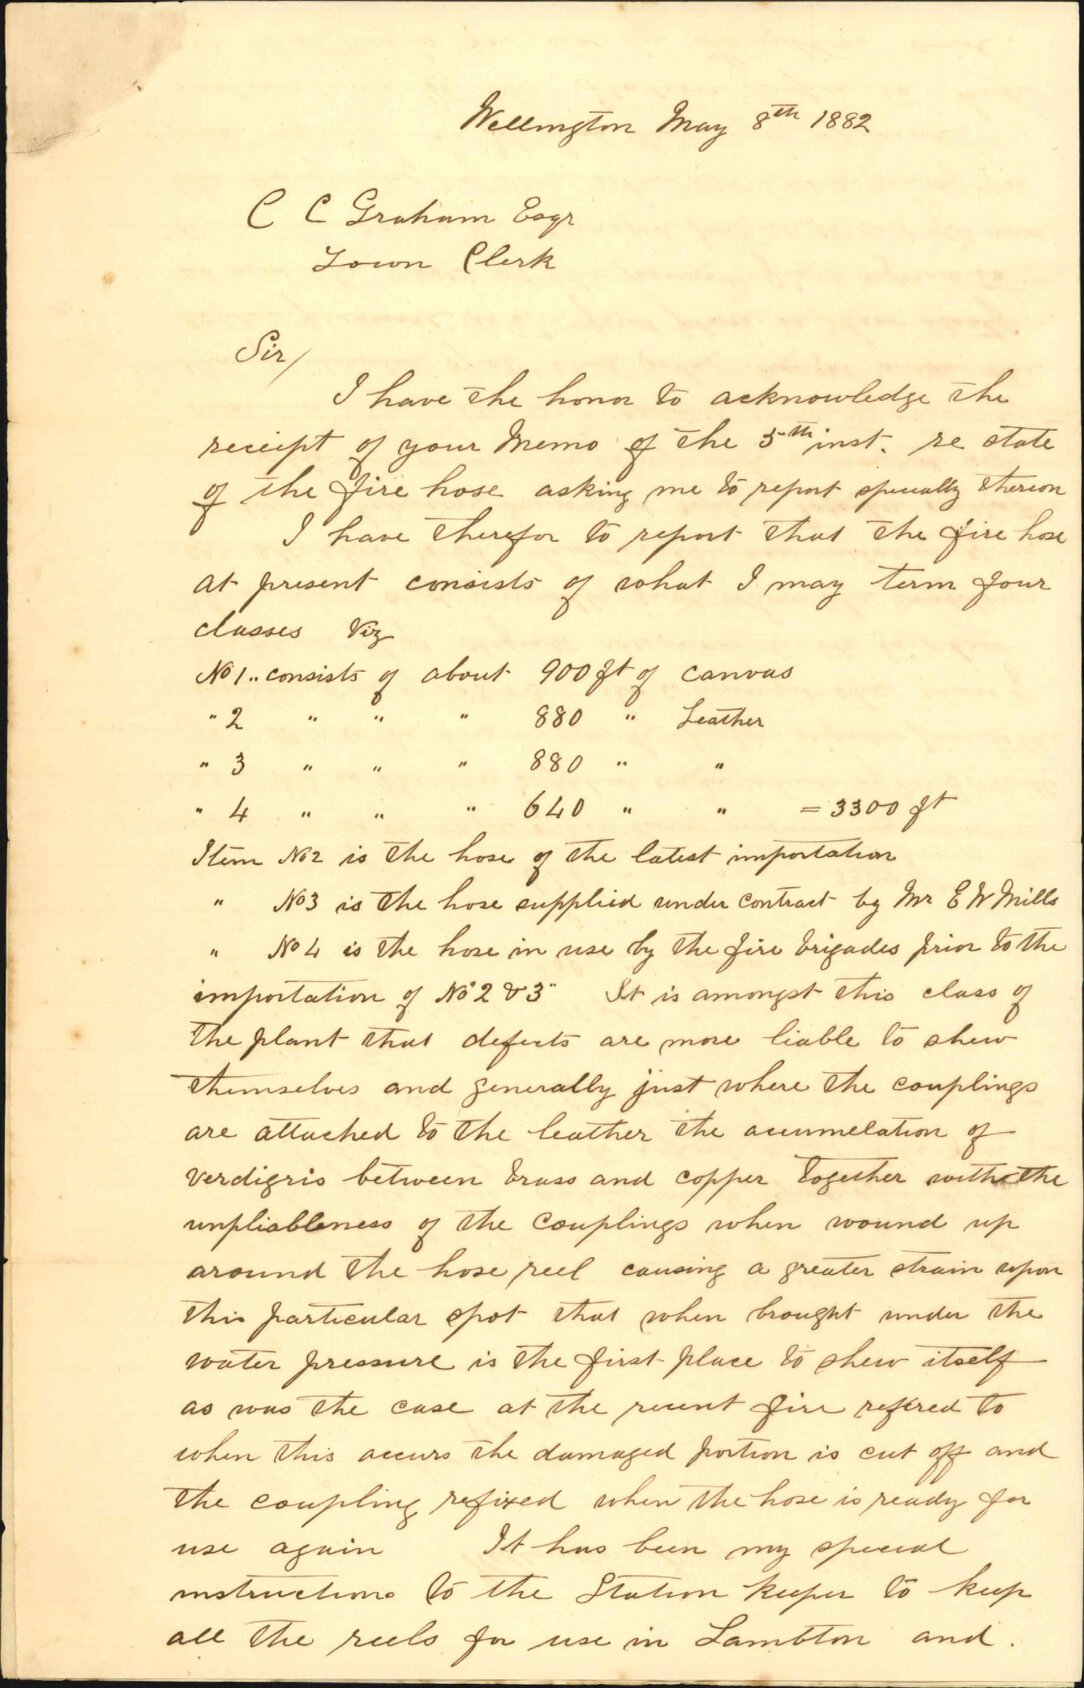 Wellington May 8th 1882
C C Graham Esqr
Town Clerk
Sir/
I have the honor to acknowledge the
receipt of your Memo of the 5th inst. re state
of the fire hose asking me to report specially thereon
I have therefor to report that the fire hose
at present consists of what I may term four
classes Viz
No 1 .. consists of about 900 ft of canvas
" 2 " " " 880 " Leather
" 3 " " " 880 " "
" 4 " " " 640 " " = 3300 ft
Item No 2 is the hose of the latest importation
" No 3 is the hose supplied under contract by Mr E W Mills
" No 4 is the hose in use by the fire brigades prior to the
importation of No" 2 & 3" It is amongst this class of
the plant that defects are more liable to shew
themselves and generally just where the couplings
are attached to the leather the accumelation of
verdigris between brass and copper together with the
unpliableness of the couplings when wound up
around the hose reel causing a greater strain upon
this particular spot that when brought under the
water pressure is the first place to shew itself
as was the case at the recent fire refered to
when this accurs the damaged portion is cut off and
the coupling refixed when the hose is ready for
use again It has been my special
instructions to the Station keeper to keep
all the reels for use in Lambton and .